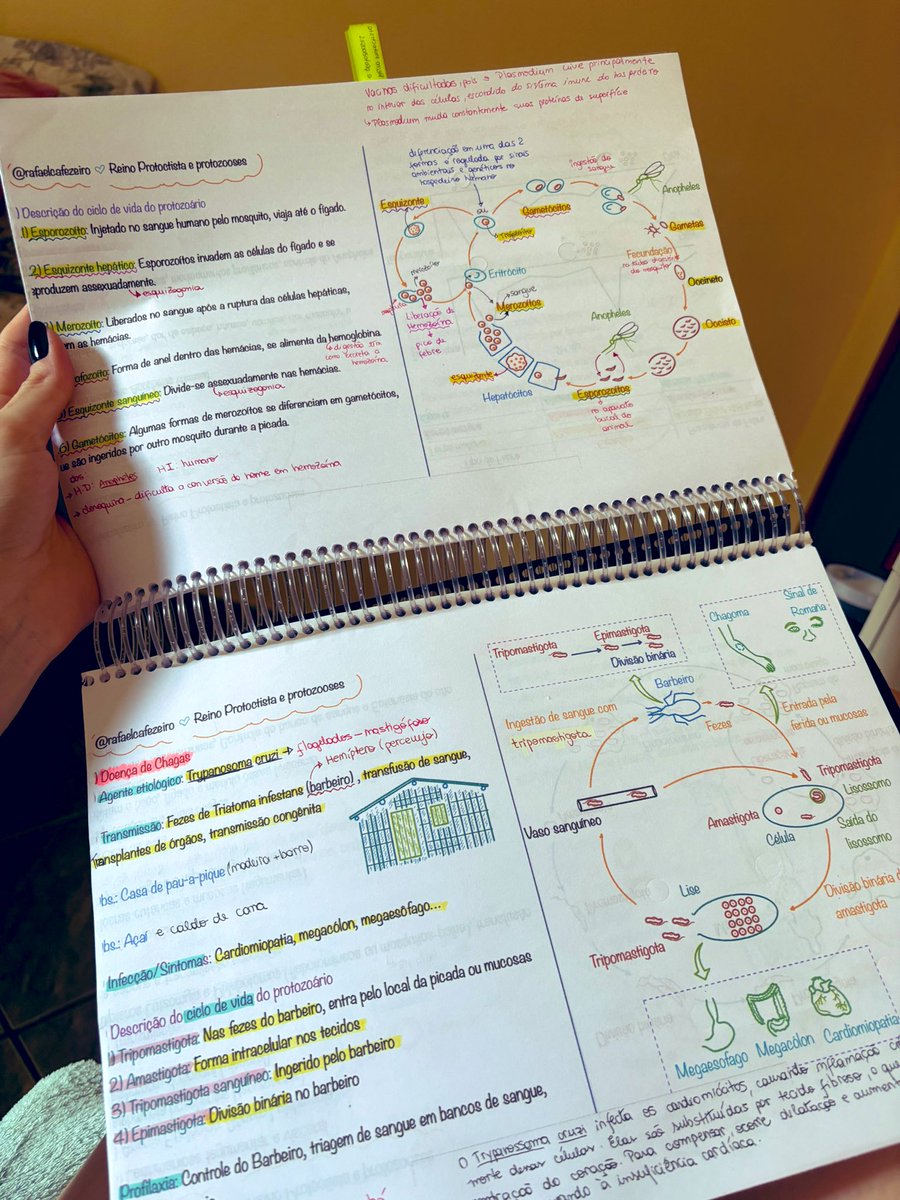 Vacinas dificultadas, pois o Plasmodium vive principalmente
no interior das células, escondido do sistema imune do hospedeiro
↳ Plasmodium muda constantemente suas proteínas de superfície
@rafaelcafezeiro ♡ Reino Protoctista e protozooses
) Descrição do ciclo de vida do protozoário
1) Esporozoíto: Injetado no sangue humano pelo mosquito, viaja até o fígado.
2) Esquizonte hepático: Esporozoítos invadem as células do fígado e se
eproduzem assexuadamente.
↳ esquizogonia
) Merozoíto: Liberados no sangue após a ruptura das células hepáticas,
m as hemácias.
ofozoíto: Forma de anel dentro das hemácias, se alimenta da hemoglobina.
↳ digestão
hemozoína
) Esquizonte sanguíneo: Divide-se assexuadamente nas hemácias.
↳ esquizogonia
6) Gametócitos: Algumas formas de merozoítos se diferenciam em gametócitos,
ue são ingeridos por outro mosquito durante a picada.
→ H.D: Anopheles HI: humano
dificulta a conversão do heme em hemozoína
diferenciação em uma das 2
formas é regulada por sinais
ambientais e genéticos no
hospedeiro humano
Ingestão de
sangue
Anopheles
Esquizonte
ou
Gametócitos
Gametas
Fecundação
Oocineto
Eritrócito
sangue
Merozoítos
Liberação de
Hemozoína
↓
pico de
febre
Anopheles
Oocisto
esquizonte
Hepatócitos
Esporozoítos
no aparato
bucal do
animal
@rafaelcafezeiro ♡ Reino Protoctista e protozooses
) Doença de Chagas
Agente etiológico: Trypanosoma cruzi → flagelados – mastigóforo
Hemíptero (percevejo)
Transmissão: Fezes de Triatoma infestans (barbeiro), transfusão de sangue,
transplantes de órgãos, transmissão congênita
bs.: Casa de pau-a-pique (madeira + barro)
bs.: Açaí e caldo de cana
Infecção/Sintomas: Cardiomiopatia, megacólon, megaesôfago...
Descrição do ciclo de vida do protozoário
1) Tripomastigota: Nas fezes do barbeiro, entra pelo local da picada ou mucosas
2) Amastigota: Forma intracelular nos tecidos
3) Tripomastigota sanguíneo: Ingerido pelo barbeiro
4) Epimastigota: Divisão binária no barbeiro
Profilaxia: Controle do Barbeiro, triagem de sangue em bancos de sangue,
Tripomastigota
Epimastigota
Divisão binária
Chagoma
Sinal de
Romana
Barbeiro
Ingestão de sangue com
tripomastigota
Fezes
Entrada pela
ferida ou mucosas
Tripomastigota
Lisossomo
Vaso sanguíneo
Amastigota
Célula
Saída do
lisossomo
Lise
Divisão binária d
amastigota
Tripomastigota
Megaesofago
Megacólon
Cardiomiopatia
O Trypanossoma cruzi infecta os cardiomiócitos, causando inflamação
morte dessas células. Elas são substituídas por tecido fibroso, o que
ontração do coração. Para compensar, ocorre dilatação e aument
ando à insuficiência cardíaca.